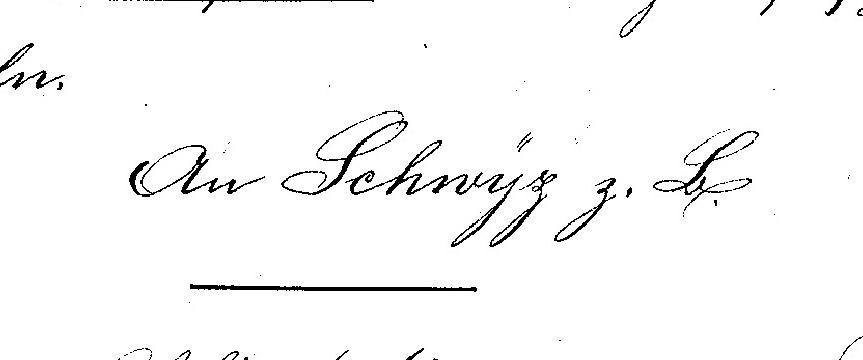 ln.
An Schwÿz z. B.